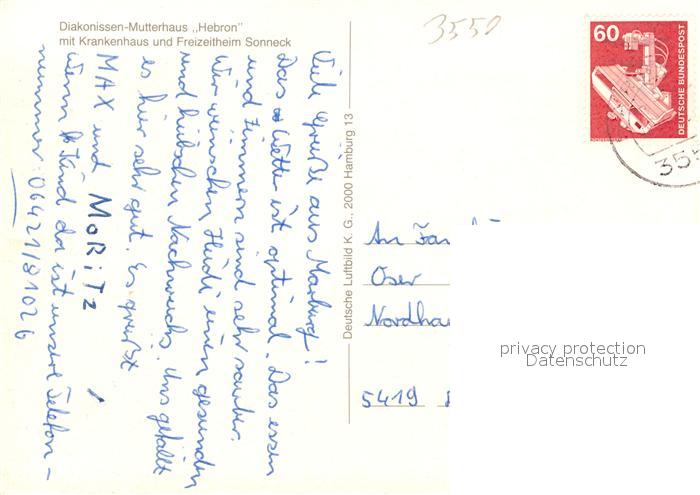 Diakonissen-Mutterhaus „Hebron"
mit Krankenhaus und Freizeitheim Sonneck
3550
60
DEUTSCHE BUNDESPOST
355
Viele Grüße aus Marburg!
Das Wetter ist optimal. Das essen
und Zimmern sind sehr sauber.
Wir wünschen Heidi einen gesunden
und hübschen Nachwuchs. Uns gefällt
es hier sehr gut. Es grüßt
MAX und MORiTZ
wenn Kind da ist unsere Telefon-
nummer: 06421/81026
Deutsche Luftbild K. G., 2000 Hamburg 13
An Fa
Oser
Nordha
5419
privacy protection
Datenschutz